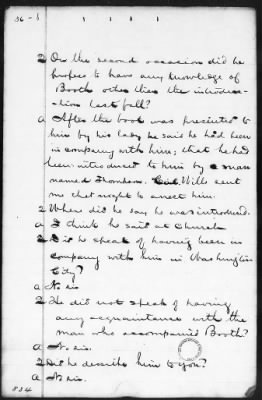 36-1
Q On the second occasion did he
profess to have any knowledge of
Booth other than the introduc-
-tion last fall?
A After the boot was presented to
him by his lady he said he had been
in company with him; that he had
been introduced to him by a man
named Thompson. Col. Wells sent
me that night to arrest him.
Q Where did he say he was introduced.
A I think he said at Church
Q Did he speak of having been in
company with him in Washington
City?
A No sir
Q He did not speak of having
any acquaintance with the
man who accompanied Booth?
A No sir.
Q Did he describe him to you?
A No sir.
834